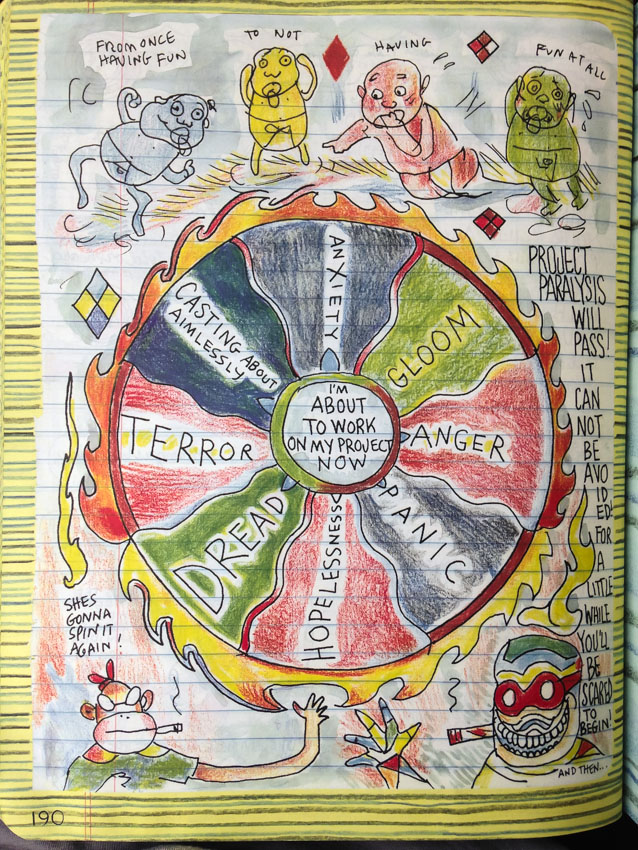 FROM ONCE
HAVING FUN
TO NOT
HAVING
FUN AT ALL
ANXIETY
GLOOM
ANGER
PANIC
HOPELESSNESS
DREAD
TERROR
CASTING ABOUT
AIMLESSLY
I'M
ABOUT
TO WORK
ON MY PROJECT
NOW
PROJECT
PARALYSIS
WILL
PASS!
IT
CAN
NOT
BE
AVO
ID
ED!
FOR
A
LITTLE
WHILE
YOU'LL
BE
SCARED
TO
BEGIN!
AND THEN...
SHES
GONNA
SPIN IT
AGAIN!
190